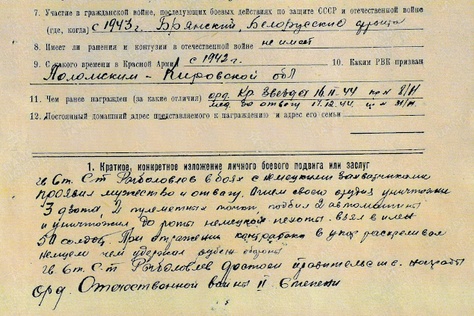 7. Участие в гражданской войне, последующих боевых действиях по защите СССР и отечественной войне
(где, когда) с 1943 г. Брянский, Белорусский фронт
8. Имеет ли ранения и контузии в отечественной войне не имеет
9. С какого времени в Красной Армии с 1942 г. 10. Каким РВК призван
Кировской обл
11. Чем ранее награжден (за какие отличия) орд. Кр Звезда 16.11.44
мед. За отвагу 17.12.44
12. Постоянный домашний адрес представляемого к награждению и адрес его семьи
1. Краткое, конкретное изложение личного боевого подвига или заслуг
гв Ст. С-т Рыболовлев в боях с немецкими захватчиками
проявил мужество и отвагу. Огнем своего орудия уничтожил
3 дзота, 2 пулеметных точки, подбил 2 автомашины
и уничтожил до роты немецкой пехоты. взял в плен
50 солдат. При отражении контратаки в упор расстреливал
немцев чем удержал
гв. Ст. С-т Рыболовлев достоен правительств. награды
орд. Отечественной войны II степени